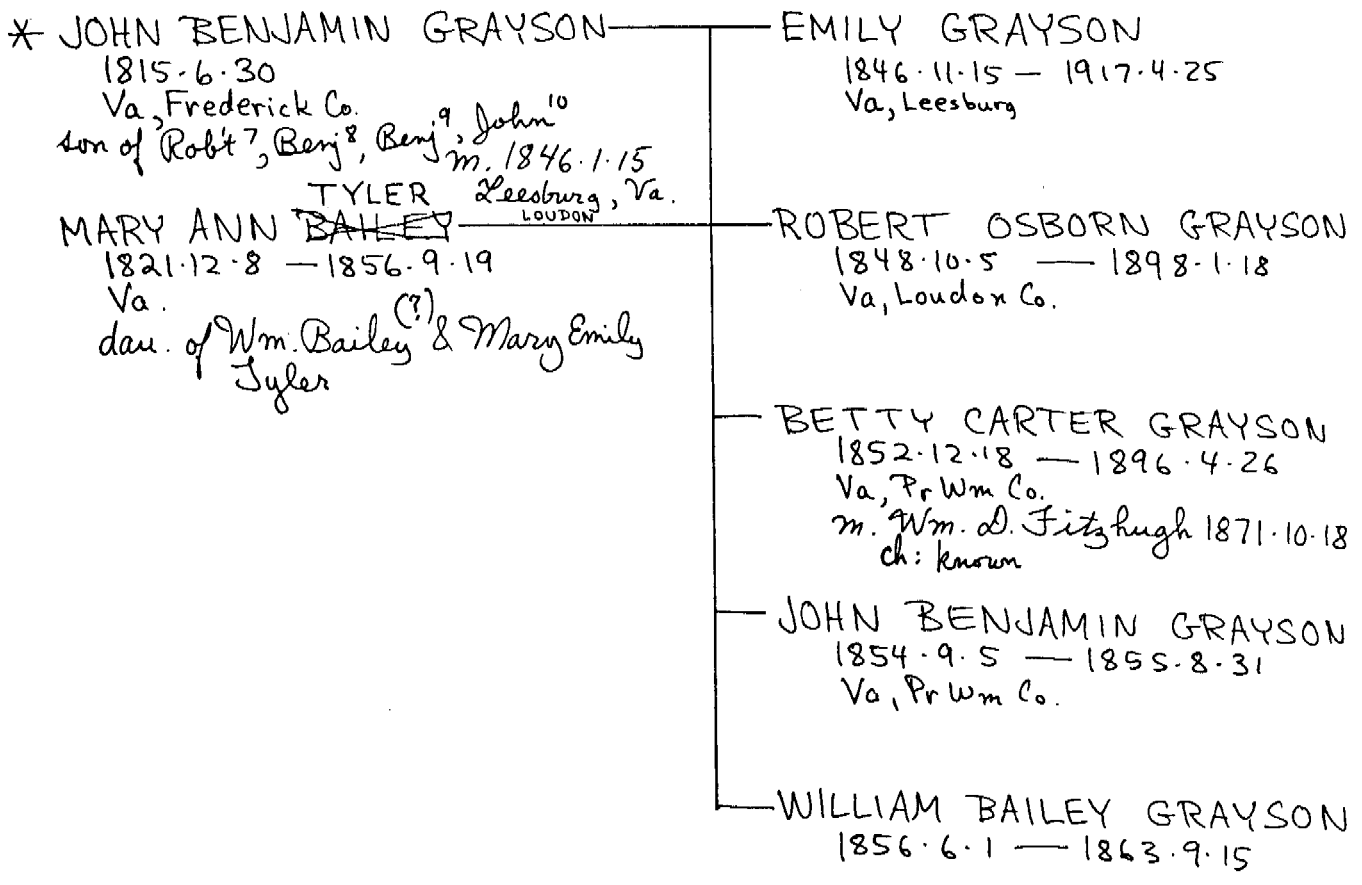 * JOHN BENJAMIN GRAYSON
1815·6·30
Va, Frederick Co.
son of Rob't⁷, Benj⁸, Benj⁹, John¹⁰
m. 1846·1·15
Leesburg, Va.
LOUDON
TYLER
MARY ANN BAILEY
1821·12·8 — 1856·9·19
Va.
dau. of Wm. Bailey (?) & Mary Emily
Tyler
EMILY GRAYSON
1846·11·15 — 1917·4·25
Va, Leesburg
ROBERT OSBORN GRAYSON
1848·10·5 — 1898·1·18
Va, Loudon Co.
BETTY CARTER GRAYSON
1852·12·18 — 1896·4·26
Va, Pr Wm Co.
m. Wm. D. Fitzhugh 1871·10·18
ch: known
JOHN BENJAMIN GRAYSON
1854·9·5 — 1855·8·31
Va, Pr Wm Co.
WILLIAM BAILEY GRAYSON
1856·6·1 — 1863·9·15